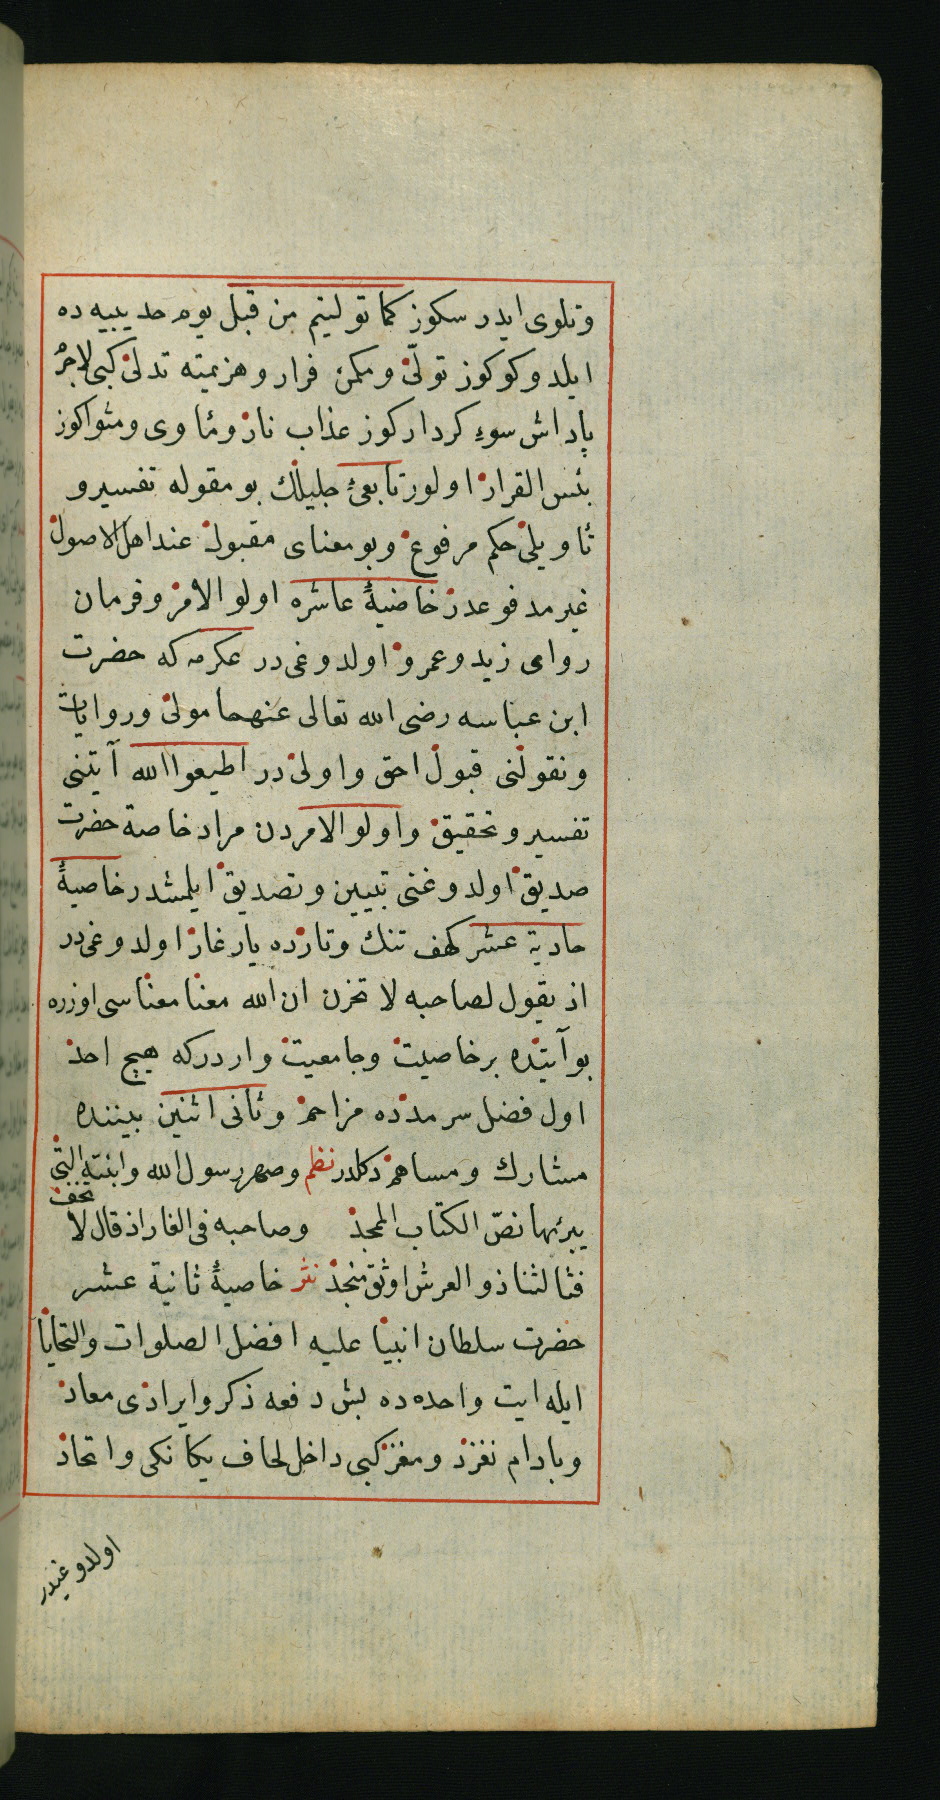 وتلوی ایدر سکوز کما تولیتم من قبل یوم حدیبیه ده
ایلدوکوکوز تولّی ومکمن فرار وهزیمته تدلی کبی لاجرم
پاداش سوء کردارکوز عذاب نار ومأوی ومثواکوز
بئس القرار اولور تابعیٔ جلیلك بو مقوله تفسیر و
تأویلی حکم مرفوع وبو معنای مقبول عند اهل الاصول
غیر مدفوعدر خاصیهٔ عاشره اولو الامر وفرمان
روای زید وعمرو اولدوغی در عکرمه که حضرت
ابن عباسه رضی الله تعالی عنهما مولی وروایات
ونقولنی قبول احق واولی در اطیعوا الله آیتنی
تفسیر وتحقیق واولو الامردن مراد خاصة حضرت
صدیق اولدوغنی تبیین وتصدیق ایلمشدر خاصیهٔ
حادیة عشر کهف تنك وتارده یار غار اولدوغی در
اذ یقول لصاحبه لا تحزن ان الله معنا معناسی اوزره
بو آیتده بر خاصیت وجامعیت واردرکه هیچ احد
اول فضل سرمدده مزاحم وثانی اثنین بیننده
مشارك ومساهم دکلدر نظم وصهر رسول الله وابنته التی
یبرئها نصّ الکتاب الممجد وصاحبه فی الغار اذ قال لا تخف
فثالثنا ذو العرش اوثق منجد نثر خاصیهٔ ثانیة عشر
حضرت سلطان انبیا علیه افضل الصلوات والتحایا
ایله ایت واحده ده بش دفعه ذکر وایرادی معاد
وبادام نغزد ومغز کبی داخل لحاف یکانکی واتحاد
اولدوغیدر